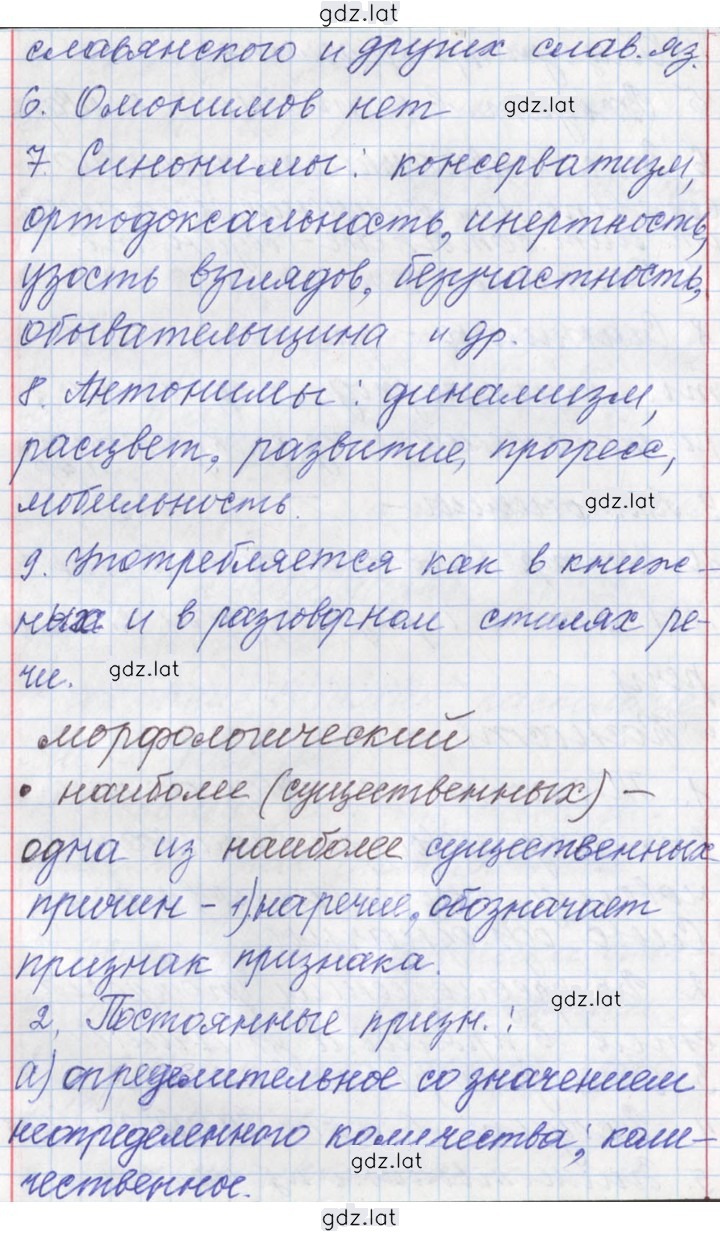 gdz.lat
славянского и других слав. яз.
6. Омонимов нет gdz.lat
7 Синонимы: консерватизм,
ортодоксальность, инертность,
узость взглядов, безучастность,
обывательщина и др.
8. Антонимы: динамизм,
расцвет, развитие, прогресс,
мобильность. gdz.lat
9. Употребляется как в книж-
ных и в разговорном стилях ре-
чи. gdz.lat
морфологический
• наиболее (существенных) –
одна из наиболее существенных
причин – 1) наречие, обозначает
признак признака.
2. Постоянные призн.: gdz.lat
а) определительное со значением
неопределенного количества; коли-
чественное. gdz.lat
gdz.lat